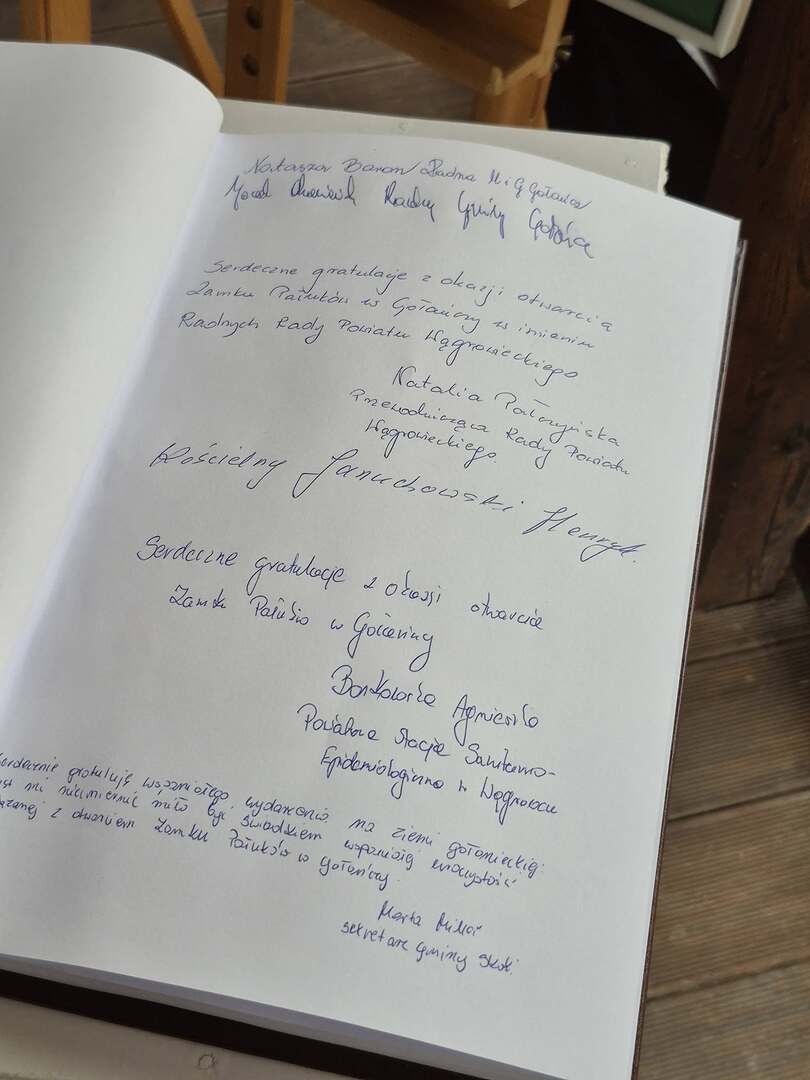 Natasza Baron Radna M i G Gołańcz
Radny Gminy Gołańcz
Serdeczne gratulacje z okazji otwarcia
Zamku Pałuków w Gołańczy w imieniu
Radnych Rady Powiatu Wągrowieckiego
Natalia Pałczyńska
Przewodnicząca Rady Powiatu
Wągrowieckiego.
Kościelny Januchowski Henryk.
Serdeczne gratulacje z okazji otwarcia
Zamku w Gołańczy
Agnieszka
Powiatowa Stacja Sanitarno-
Epidemiologiczna w Wągrowcu
Serdecznie gratuluję wspaniałego wydarzenia na ziemi gołanieckiej.
mi niezmiernie miło być świadkiem wspaniałej uroczystości
z otwarciem Zamku Pałuków w Gołańczy.
Marta
sekretarz gminy Skoki.